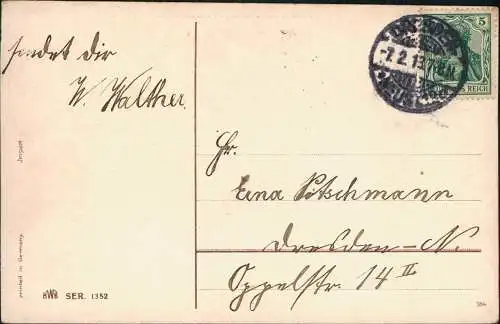 sendet dir
W. Walther.
Import
printed in Germany.
BWB SER. 1352
5
REICH
DRESDEN
-7.2.13
Fr.
Erna Pötschmann
Dresden-N.
Oppelstr. 14 II